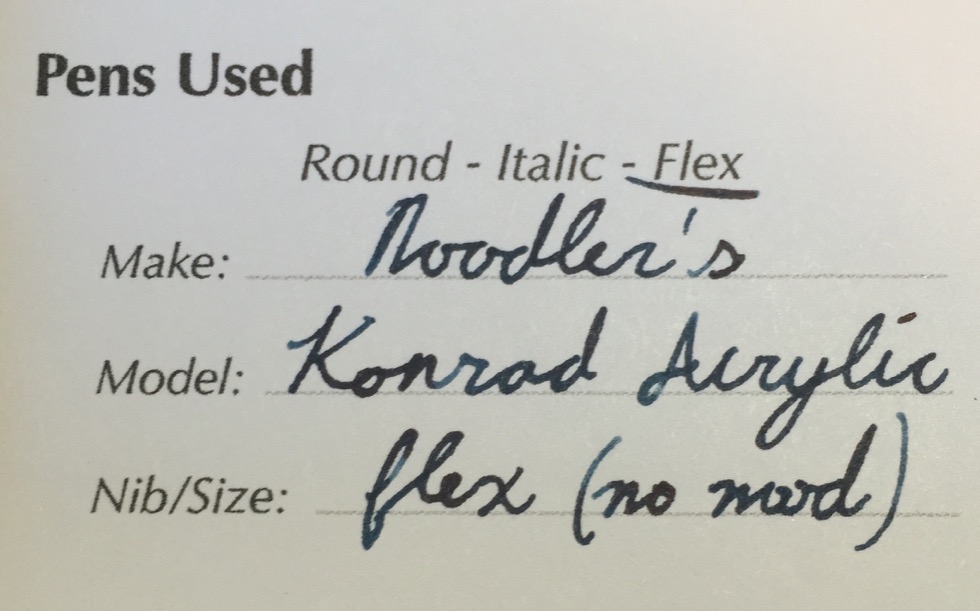 Pens Used
Round - Italic - Flex
Make: Noodler's
Model: Konrad Acrylic
Nib/Size: flex (no mod)